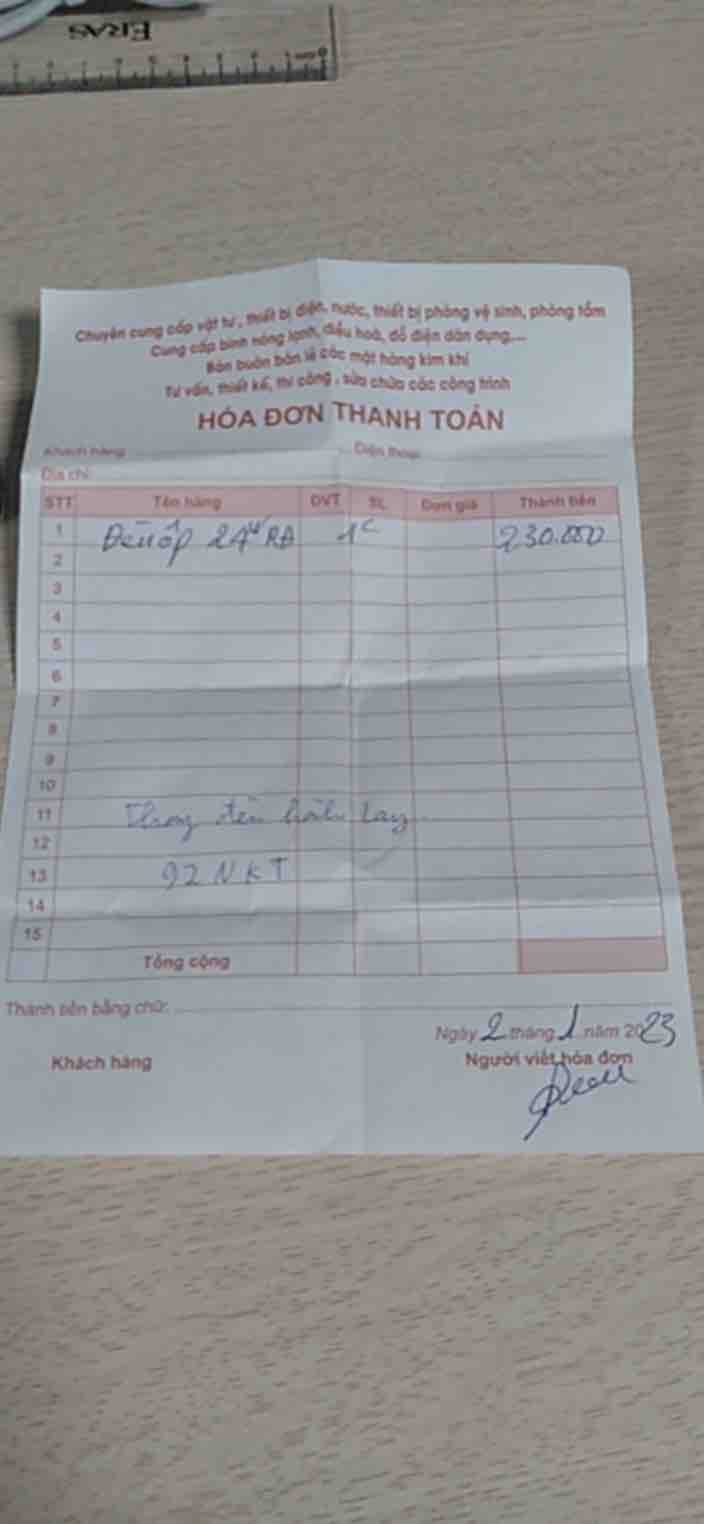 ERAS
Chuyên cung cấp vật tư, thiết bị điện, nước, thiết bị phòng vệ sinh, phòng tắm
Cung cấp bình nóng lạnh, điều hoà, đồ điện dân dụng,...
Bán buôn bán lẻ các mặt hàng kim khí
Tư vấn, thiết kế, thi công, sửa chữa các công trình
HÓA ĐƠN THANH TOÁN
Khách hàng Điện thoại
Địa chỉ
STT Tên hàng ĐVT SL Đơn giá Thành tiền
1 Đèn ốp 24W RĐ 1c 230.000
2
3
4
5
6
7
8
9
10
11 Thay đèn hành lang
12
13 92 NKT
14
15
Tổng cộng
Thành tiền bằng chữ:
Ngày 2 tháng 1 năm 2023
Khách hàng Người viết hóa đơn